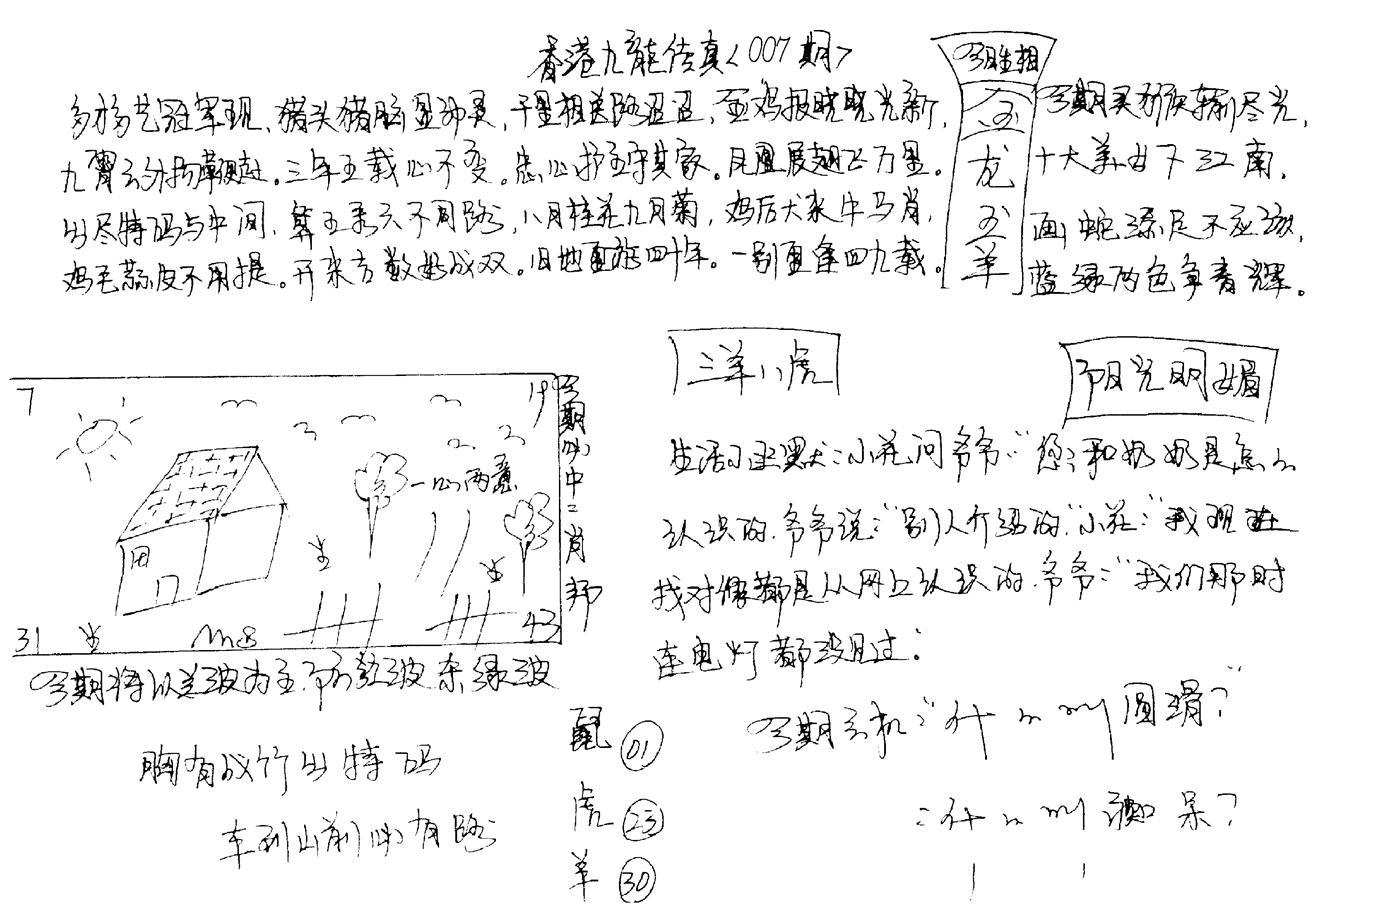 香港九龍传真(007期)
今期生相
金
龙
玉
羊
多才多艺冠军现、猪头猪脑显神灵,千里相关路迢迢,金鸡报晓晓光新,
九霄云外扬鞭赶。三年五载心不变。忠心护主守其家。凤凰展翅飞万里。
出尽特码与中间,算五乘六不同路,八月桂花九月菊,鸡后犬来牛马肖,
鸡毛蒜皮不用提。开来方数必成双。旧地重游四十年。一别重逢四九载。
尽光,
十大美女下江南,
画蛇添足不应该,
蓝绿两色争春辉。
三羊八虎
阳光明媚
7
19
一心两意
31
43
今期必中二肖邦
今期特以兰波为主、防红波杀绿波
胸有成竹出特码
车到山前必有路
鼠 01
虎 23
羊 30
生活小幽默:小花问爷爷:"您和奶奶是怎么
认识的.爷爷说:"别人介绍的"小花:"我现在
找对像都是从网上认识的.爷爷:"我们那时
连电灯都没见过:
今期玄机:"什么叫圆滑?"
:什么叫 呆?